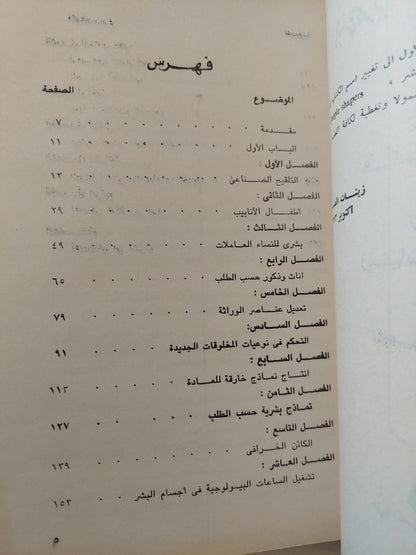 فهرس
الموضوع الصفحة
مقدمة ٧
الباب الأول ١١
الفصل الأول :
التلقيح الصناعى ١٣
الفصل الثانى :
اطفال الأنابيب ٢٩
الفصل الثالث :
بشرى للنساء العاملات ٤٩
الفصل الرابع :
اناث وذكور حسب الطلب ٦٥
الفصل الخامس :
تعديل عناصر الوراثة ٧٩
الفصل السادس:
التحكم فى نوعيات المخلوقات الجديدة ٩١
الفصل السابع :
انتاج نماذج خارقة للعادة ١١٣
الفصل الثامن :
نماذج بشرية حسب الطلب ١٢٧
الفصل التاسع :
الكائن الخرافى ١٣٩
الفصل العاشر :
تشغيل الساعات البيولوجية فى أجسام البشر ١٥٣
٥
الأول الى تغيير اسم الكتاب
shapers
وتغطية لكافة
أكتوبر